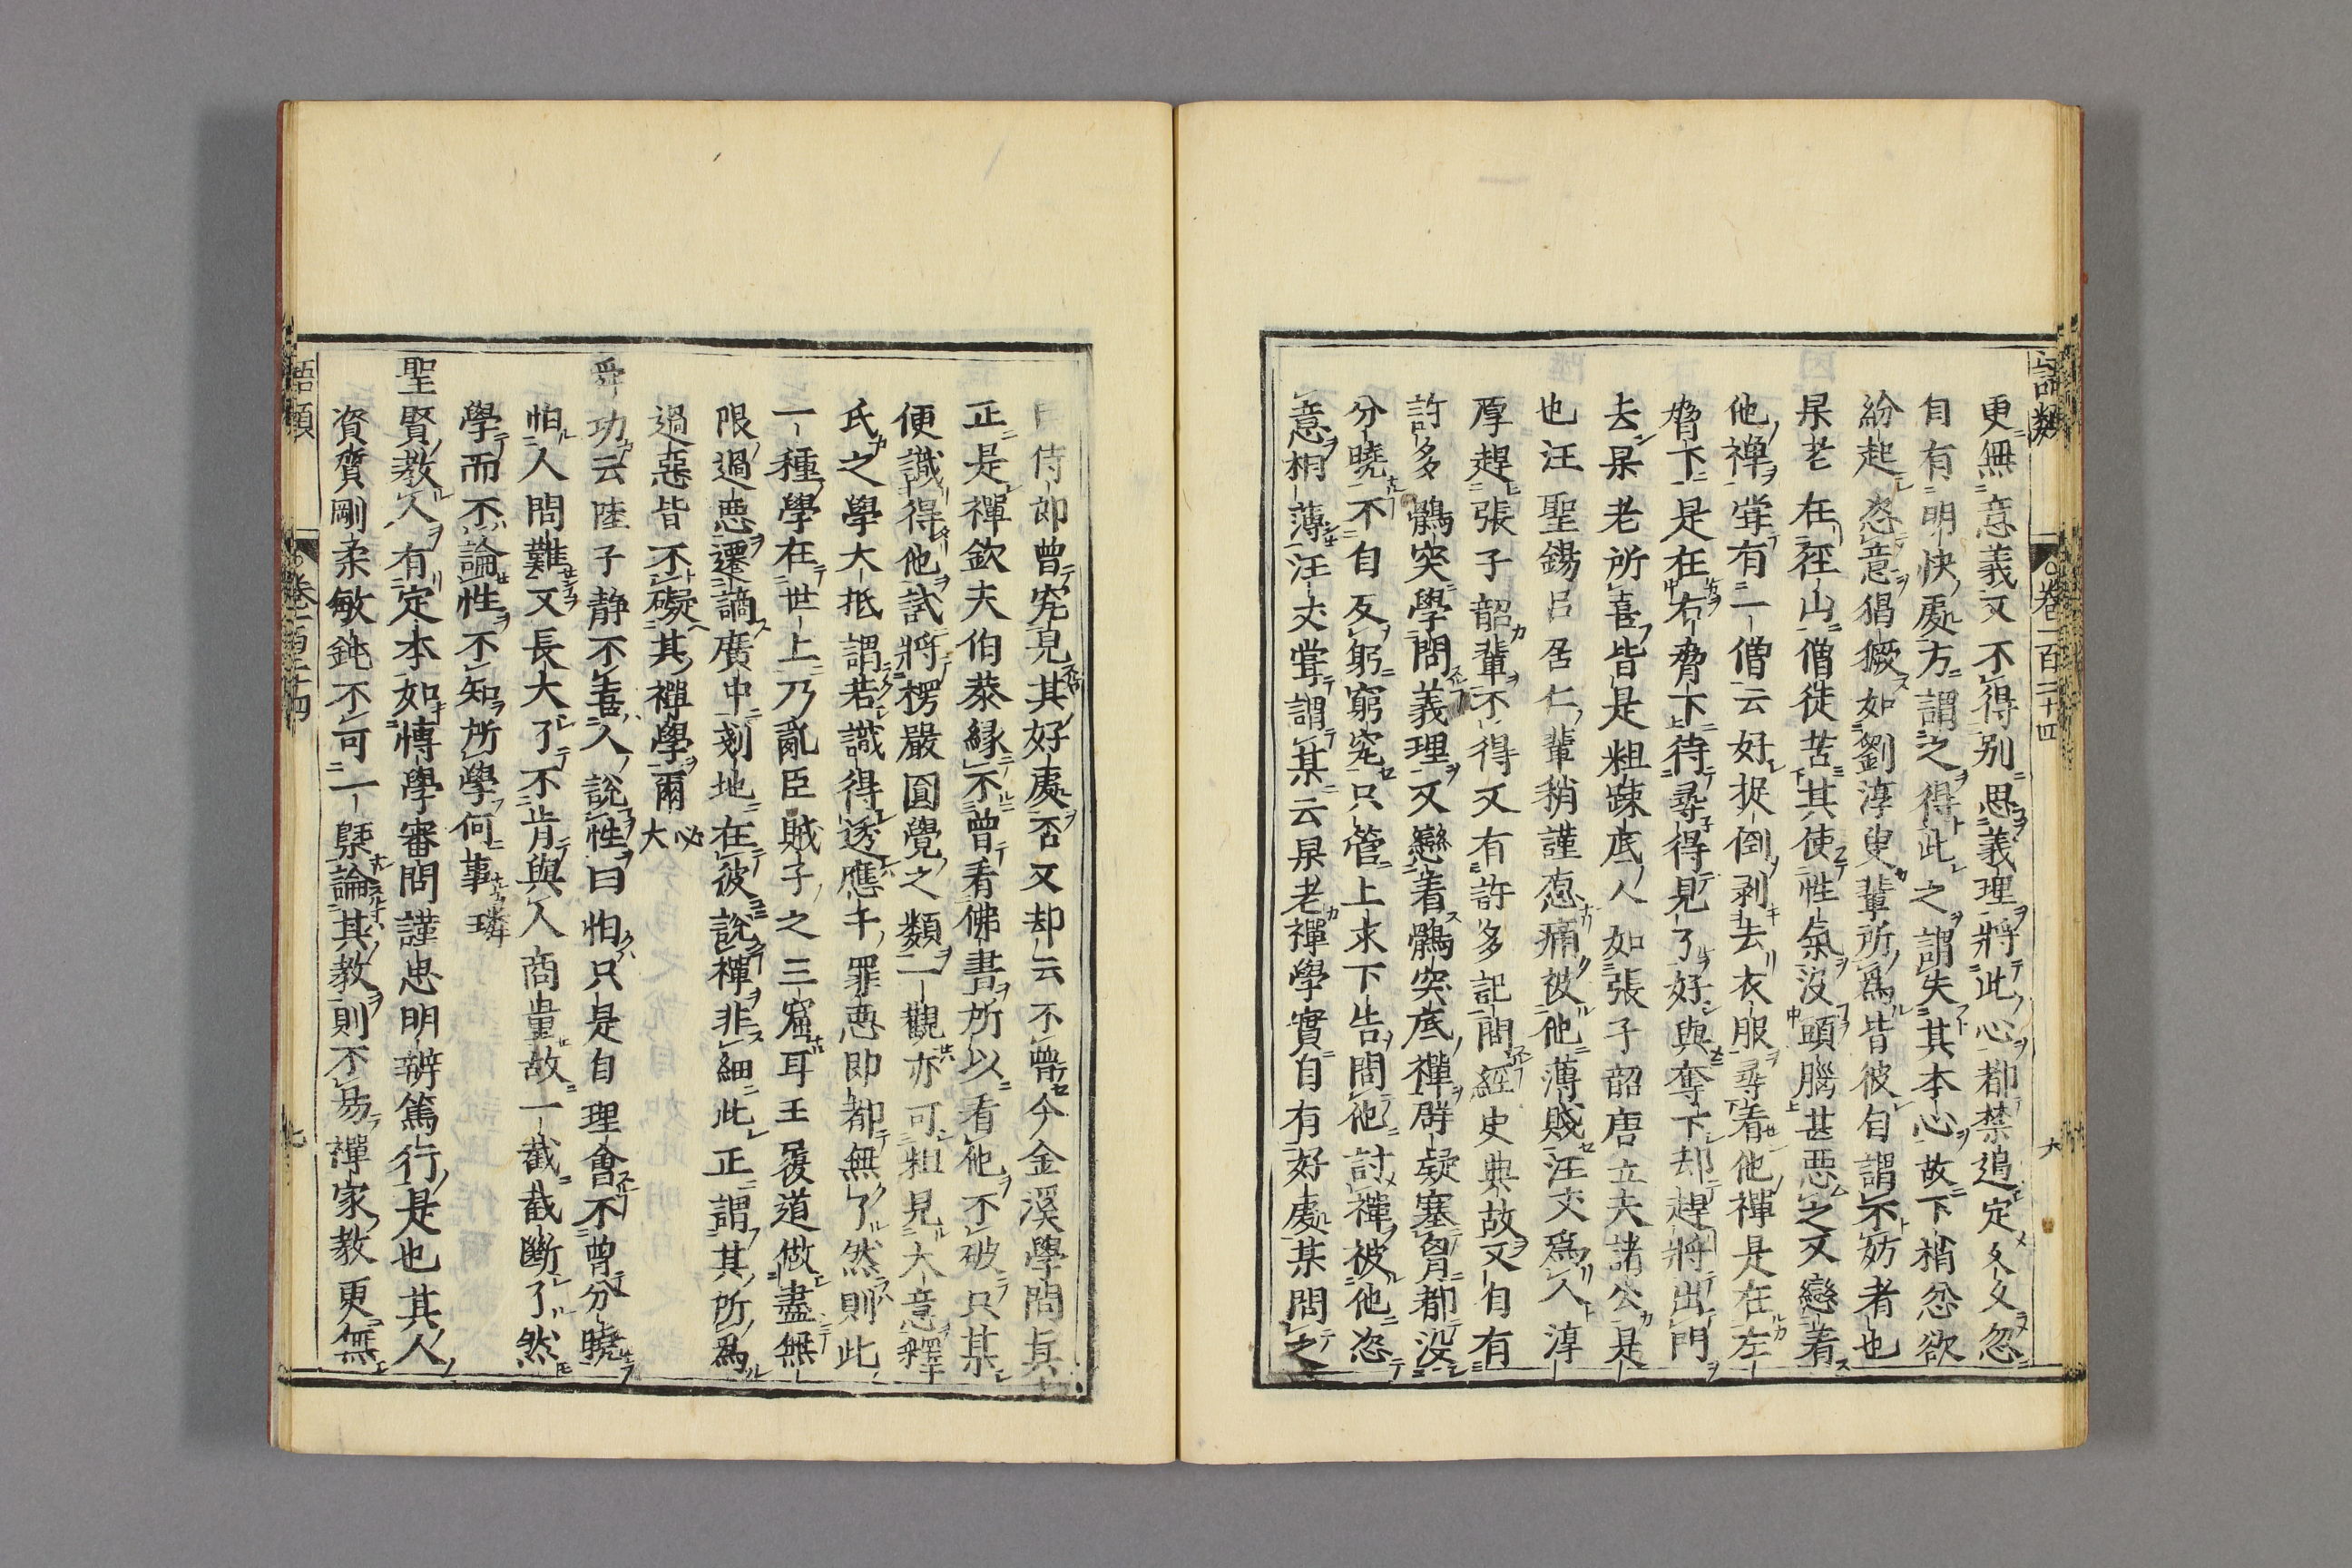 語類 卷一百二十四 六
更無意義又不得別思義理將此心都禁遏定久久忽
自有明快處方謂之得此之謂失其本心故下梢忿欲
紛起恣意猖獗如劉淳叟輩所爲皆彼自謂不妨者也
杲老在徑山僧徒苦其使性氣沒頭腦甚惡之又戀着
他禪嘗有一僧云好捉倒剥去衣服尋着他禪是在左
脅下是在右脅下待尋得見了好與奪下却趕將出門
去杲老所喜皆是粗踈底人如張子韶唐立夫諸公是
也汪聖錫呂居仁輩稍謹愿痛被他薄賤汪丈爲人淳
厚趕張子韶輩不得又有許多記問經史典故又自有
許多鶻突學問義理又戀着鶻突底禪群疑塞胷都没
分曉不自反躬窮究只管上求下告問他討禪被他恣
意相薄汪丈嘗謂某云杲老禪學實自有好處某問之
侍郎曾究見其好處否又却云不曾今金溪學問真
正是禪欽夫伯恭緣不曾看佛書所以看他不破只某
便識得他試將楞嚴圓覺之類一觀亦可粗見大意釋
氏之學大抵謂若識得透應千罪惡即都無了然則此
一種學在世上乃亂臣賊子之三窟耳王履道做盡無
限過惡遷謫廣中剗地在彼說禪非細此正謂其所爲
過惡皆不礙其禪學爾 必大
舜功云陸子静不喜人說性曰怕只是自理會不曾分曉
怕人問難又長大了不肯與人商量故一截截斷了然
學而不論性不知所學何事 璘
聖賢教人有定本如博學審問謹思明辨篤行是也其人
資質剛柔敏鈍不可一槩論其教則不易禪家教更無
語類 卷一百二十四 七